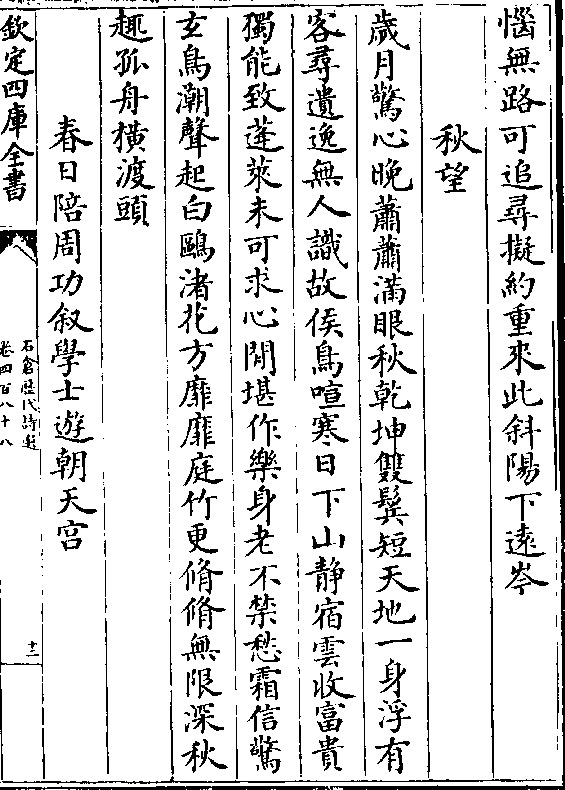 惱無路可追尋擬約重來此斜陽下遠岑
秋望
歲月驚心晚蕭蕭滿眼秋乾坤雙鬂短天地一身浮有
客尋遺逸無人識故侯鳥喧寒日下山静宿雲收富貴
獨能致蓬萊未可求心閒堪作樂身老不禁愁霜信驚
玄鳥潮聲起白鷗渚花方靡靡庭竹更脩脩無限深秋
趣孤舟橫渡頭
春日陪周功叙學士遊朝天宫
欽定四庫全書
石倉歴代詩選
卷四百八十八
十二